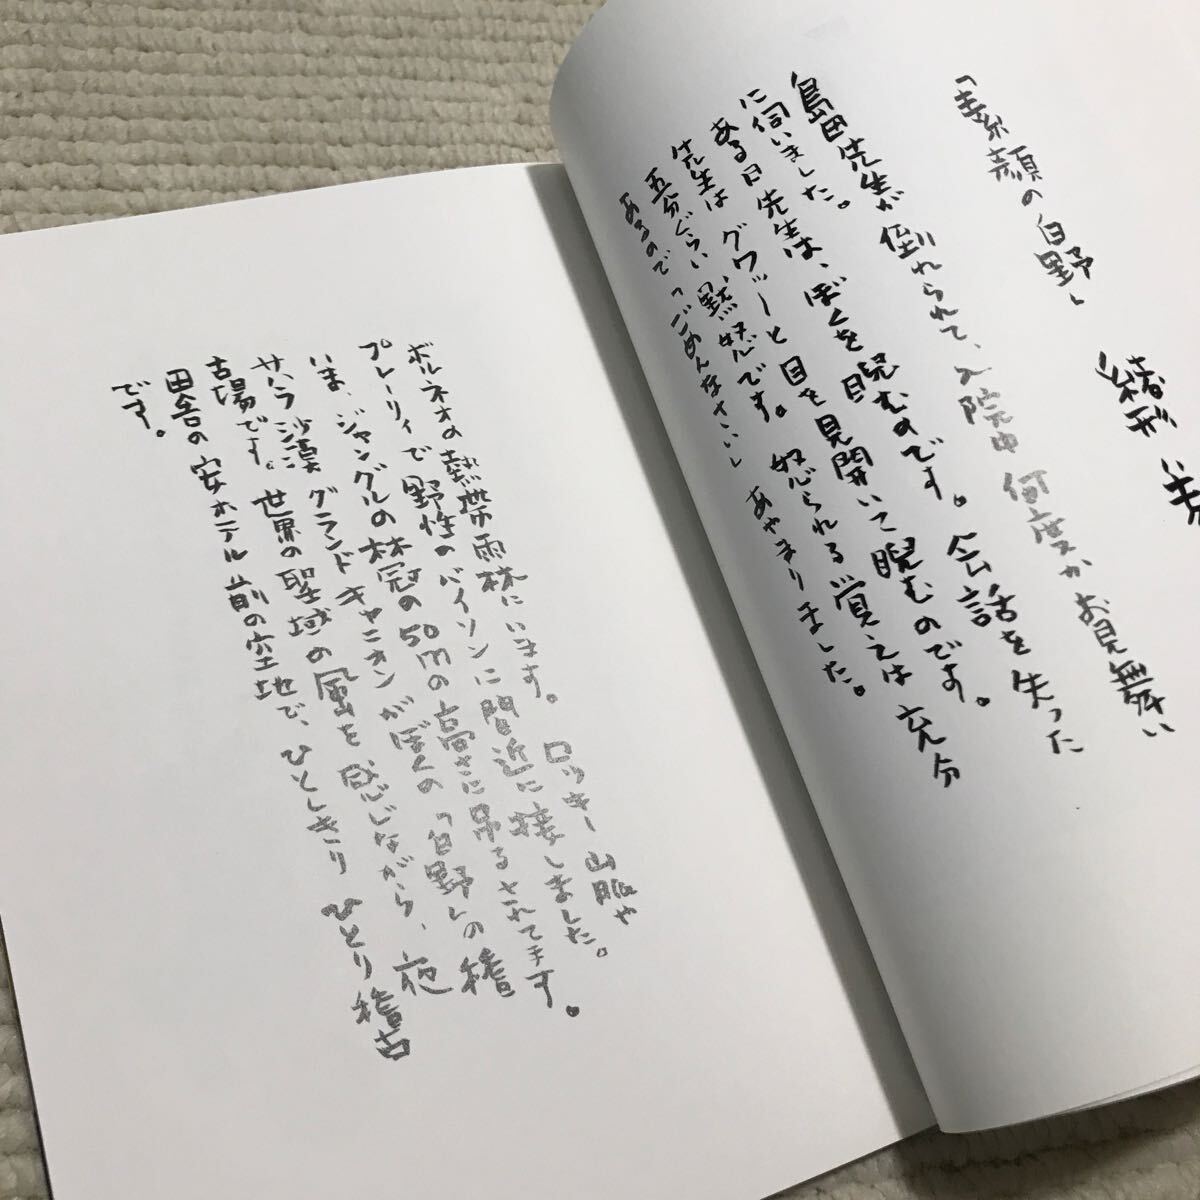 「素顔の白野」 緒形
島田先生が倒れられて、入院中何度かお見舞い
に伺いました。
ある日先生は、ぼくを睨むのです。会話を失った
先生は グワッーと目を見開いて睨むのです。
五分ぐらい黙怒です。怒られる覚えは充分
あるので「ごめんなさい」あやまりました。
ボルネオの熱帯雨林にいます。ロッキー山脈や
プレーリィで野性のバイソンに間近に接しました。
いま、ジャングルの林冠の50mの高さに吊るされてます。
サハラ沙漠グランドキャニオンがぼくの「白野」の稽
古場です。世界の聖域の風を感じながら、夜
田舎の安ホテル前の空地で、ひとしきりひとり稽古
です。